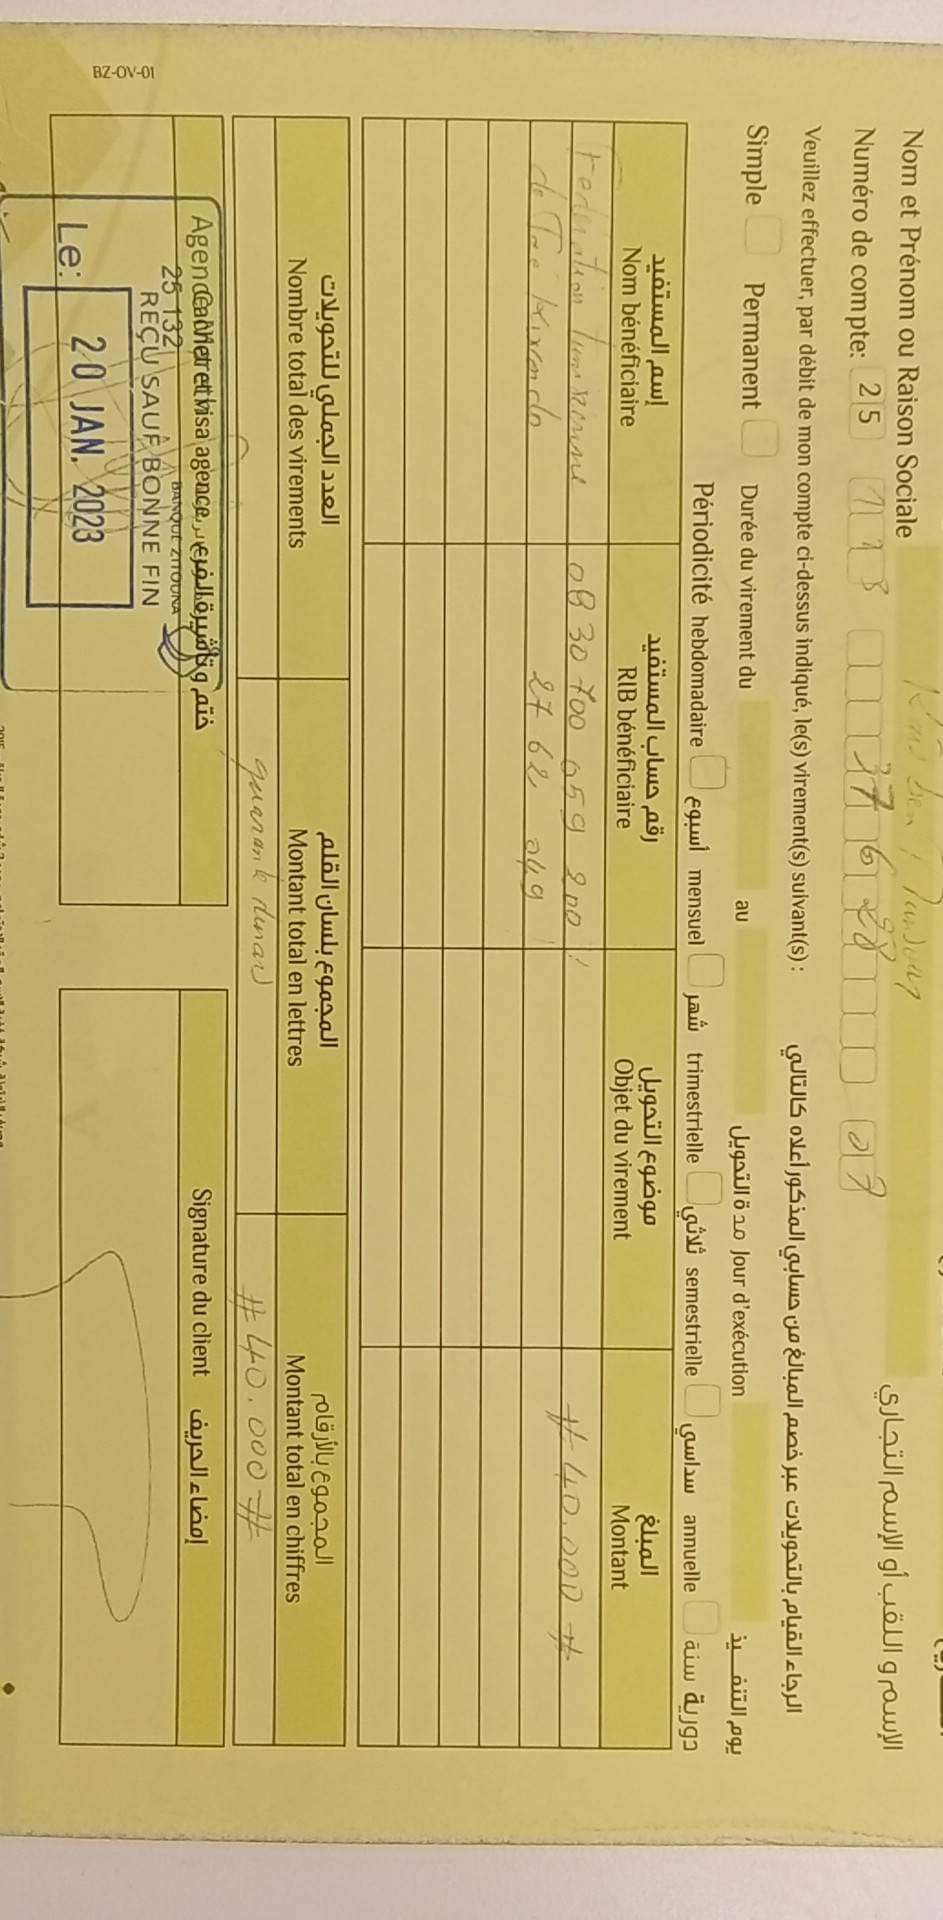 Nom et Prénom ou Raison Sociale الإسم و اللقب أو الإسم التجاري
Numéro de compte: 25 27 6 28 07
Veuillez effectuer, par débit de mon compte ci-dessus indiqué, le(s) virement(s) suivant(s) : الرجاء القيام بالتحويلات عبر خصم المبالغ من حسابي المذكور أعلاه كالتالي
Simple Permanent Durée du virement du au مدة التحويل Jour d'exécution يوم التنفيذ
Périodicité hebdomadaire أسبوع mensuel شهر trimestrielle ثلاثي semestrielle سداسي annuelle سنة دورية
إسم المستفيد رقم حساب المستفيد موضوع التحويل المبلغ
Nom bénéficiaire RIB bénéficiaire Objet du virement Montant
Federation Tunisienne 08 30 700 059 200 # 40.000 #
de 27 62 049
العدد الجملي للتحويلات المجموع بلسان القلم المجموع بالأرقام
Nombre total des virements Montant total en lettres Montant total en chiffres
quarante dinars # 40.000 #
ختم وتأشيرة الفرع Signature du client إمضاء الحريف
25 132 BANQUE ZITOUNA
REÇU SAUF BONNE FIN
Le: 20 JAN. 2023
BZ-OV-01